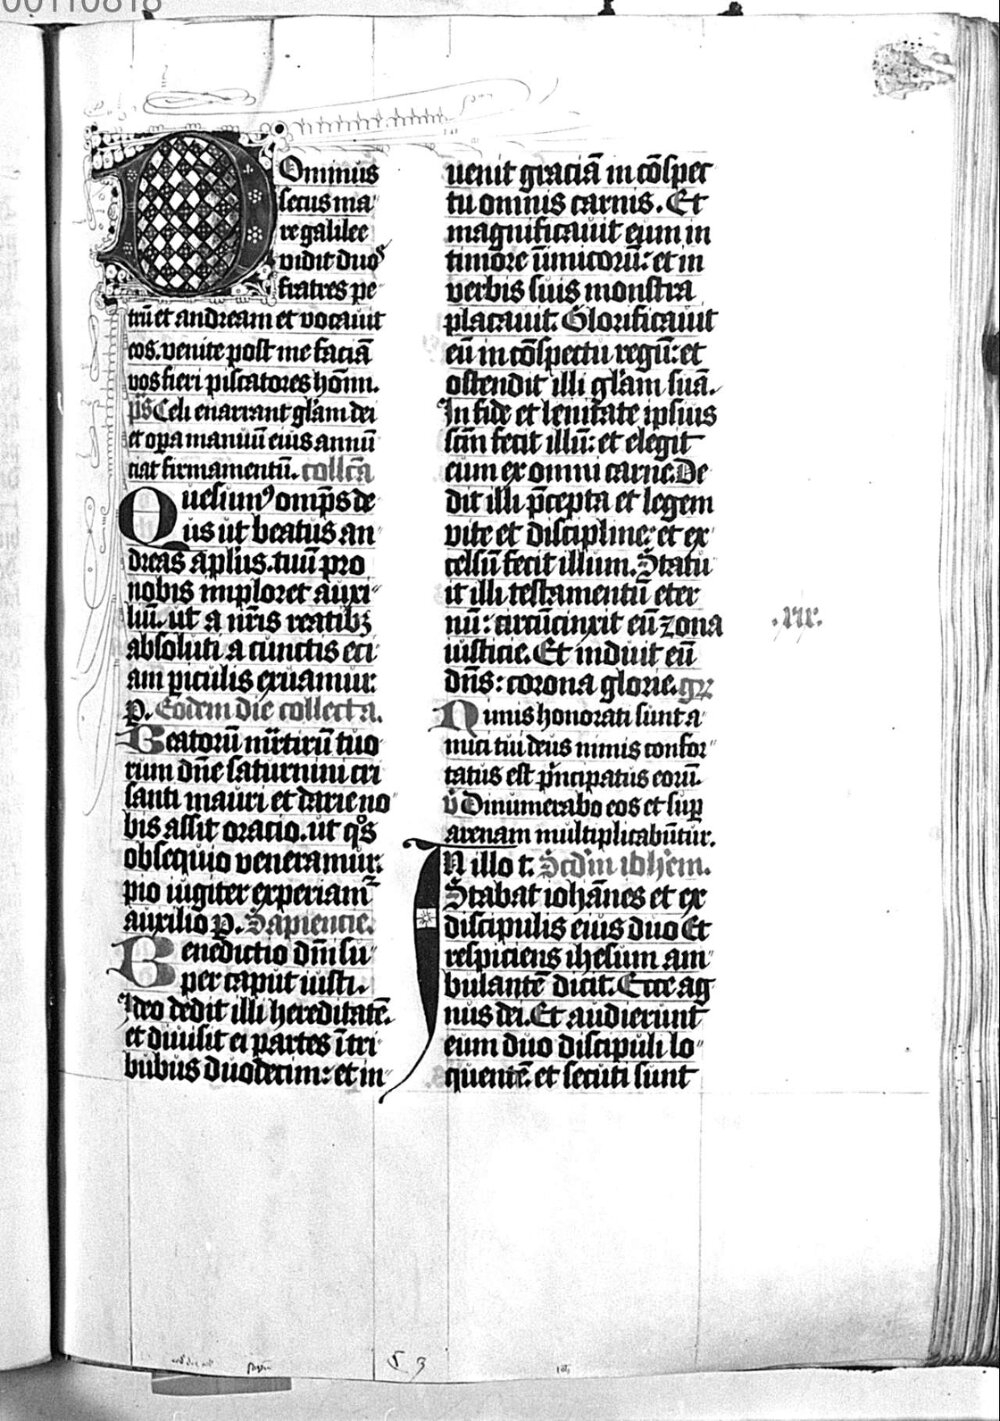 00110818
Dominus
secus ma
re galilee
vidit duos
fratres pe
trū et andream et vocauit
eos. venite post me faciā
vos fieri piscatores hoīm.
p̄s Celi enarrant glām dei
et opa manuū eius annū
ciat firmamentū. collcā
Quesumꝰ omp̄s de
us ut beatus an
dreas aplūs. tuū pro
nobis imploret auxi
liū. ut a nr̄is reatibꝫ
absoluti a cunctis eci
am piculis exuamur.
p. Eodem die collecta.
Beatorū mr̄tirū tuo
rum dn̄e saturnini cri
santi mauri et darie no
bis assit oracio. ut qͦs
obsequio veneramur.
pio iugiter experiam᷑
auxilio p. Sapiencie.
Benedictio dn̄i su
per caput iusti.
Ideo dedit illi hereditatē.
et diuisit ei partes ī tri
bubus duodecim: et in
uenit graciā in cōspec
tu omnis carnis. Et
magnificauit eum in
timore inimicorū: et in
verbis suis monstra
placauit. Glorificauit
eū in cōspectu regū: et
ostendit illi glām suā.
In fide et lenitate ipsius
scm̄ fecit illū: et elegit
eum ex omni carne. De
dit illi p̄cepta et legem
vite et discipline: et ex
celsū fecit illum. Statu
it illi testamentū eter
nū: circūcinxit eū zona
iusticie. Et induit eū
dn̄s: corona glorie. gꝝ
.xix.
Nimis honorati sunt a
mici tui deus nimis confor
tatus est pͥncipatus eorū
v̄ Dinumerabo eos et sup
arenam multiplicabūtur.
In illo t. Scdm̄ ioh'em.
Stabat iohānes et ex
discipulis eius duo Et
respiciens ihesum am
bulantē dicit. Ecce ag
nus dei. Et audierunt
eum duo discipuli lo
quentē. et secuti sunt